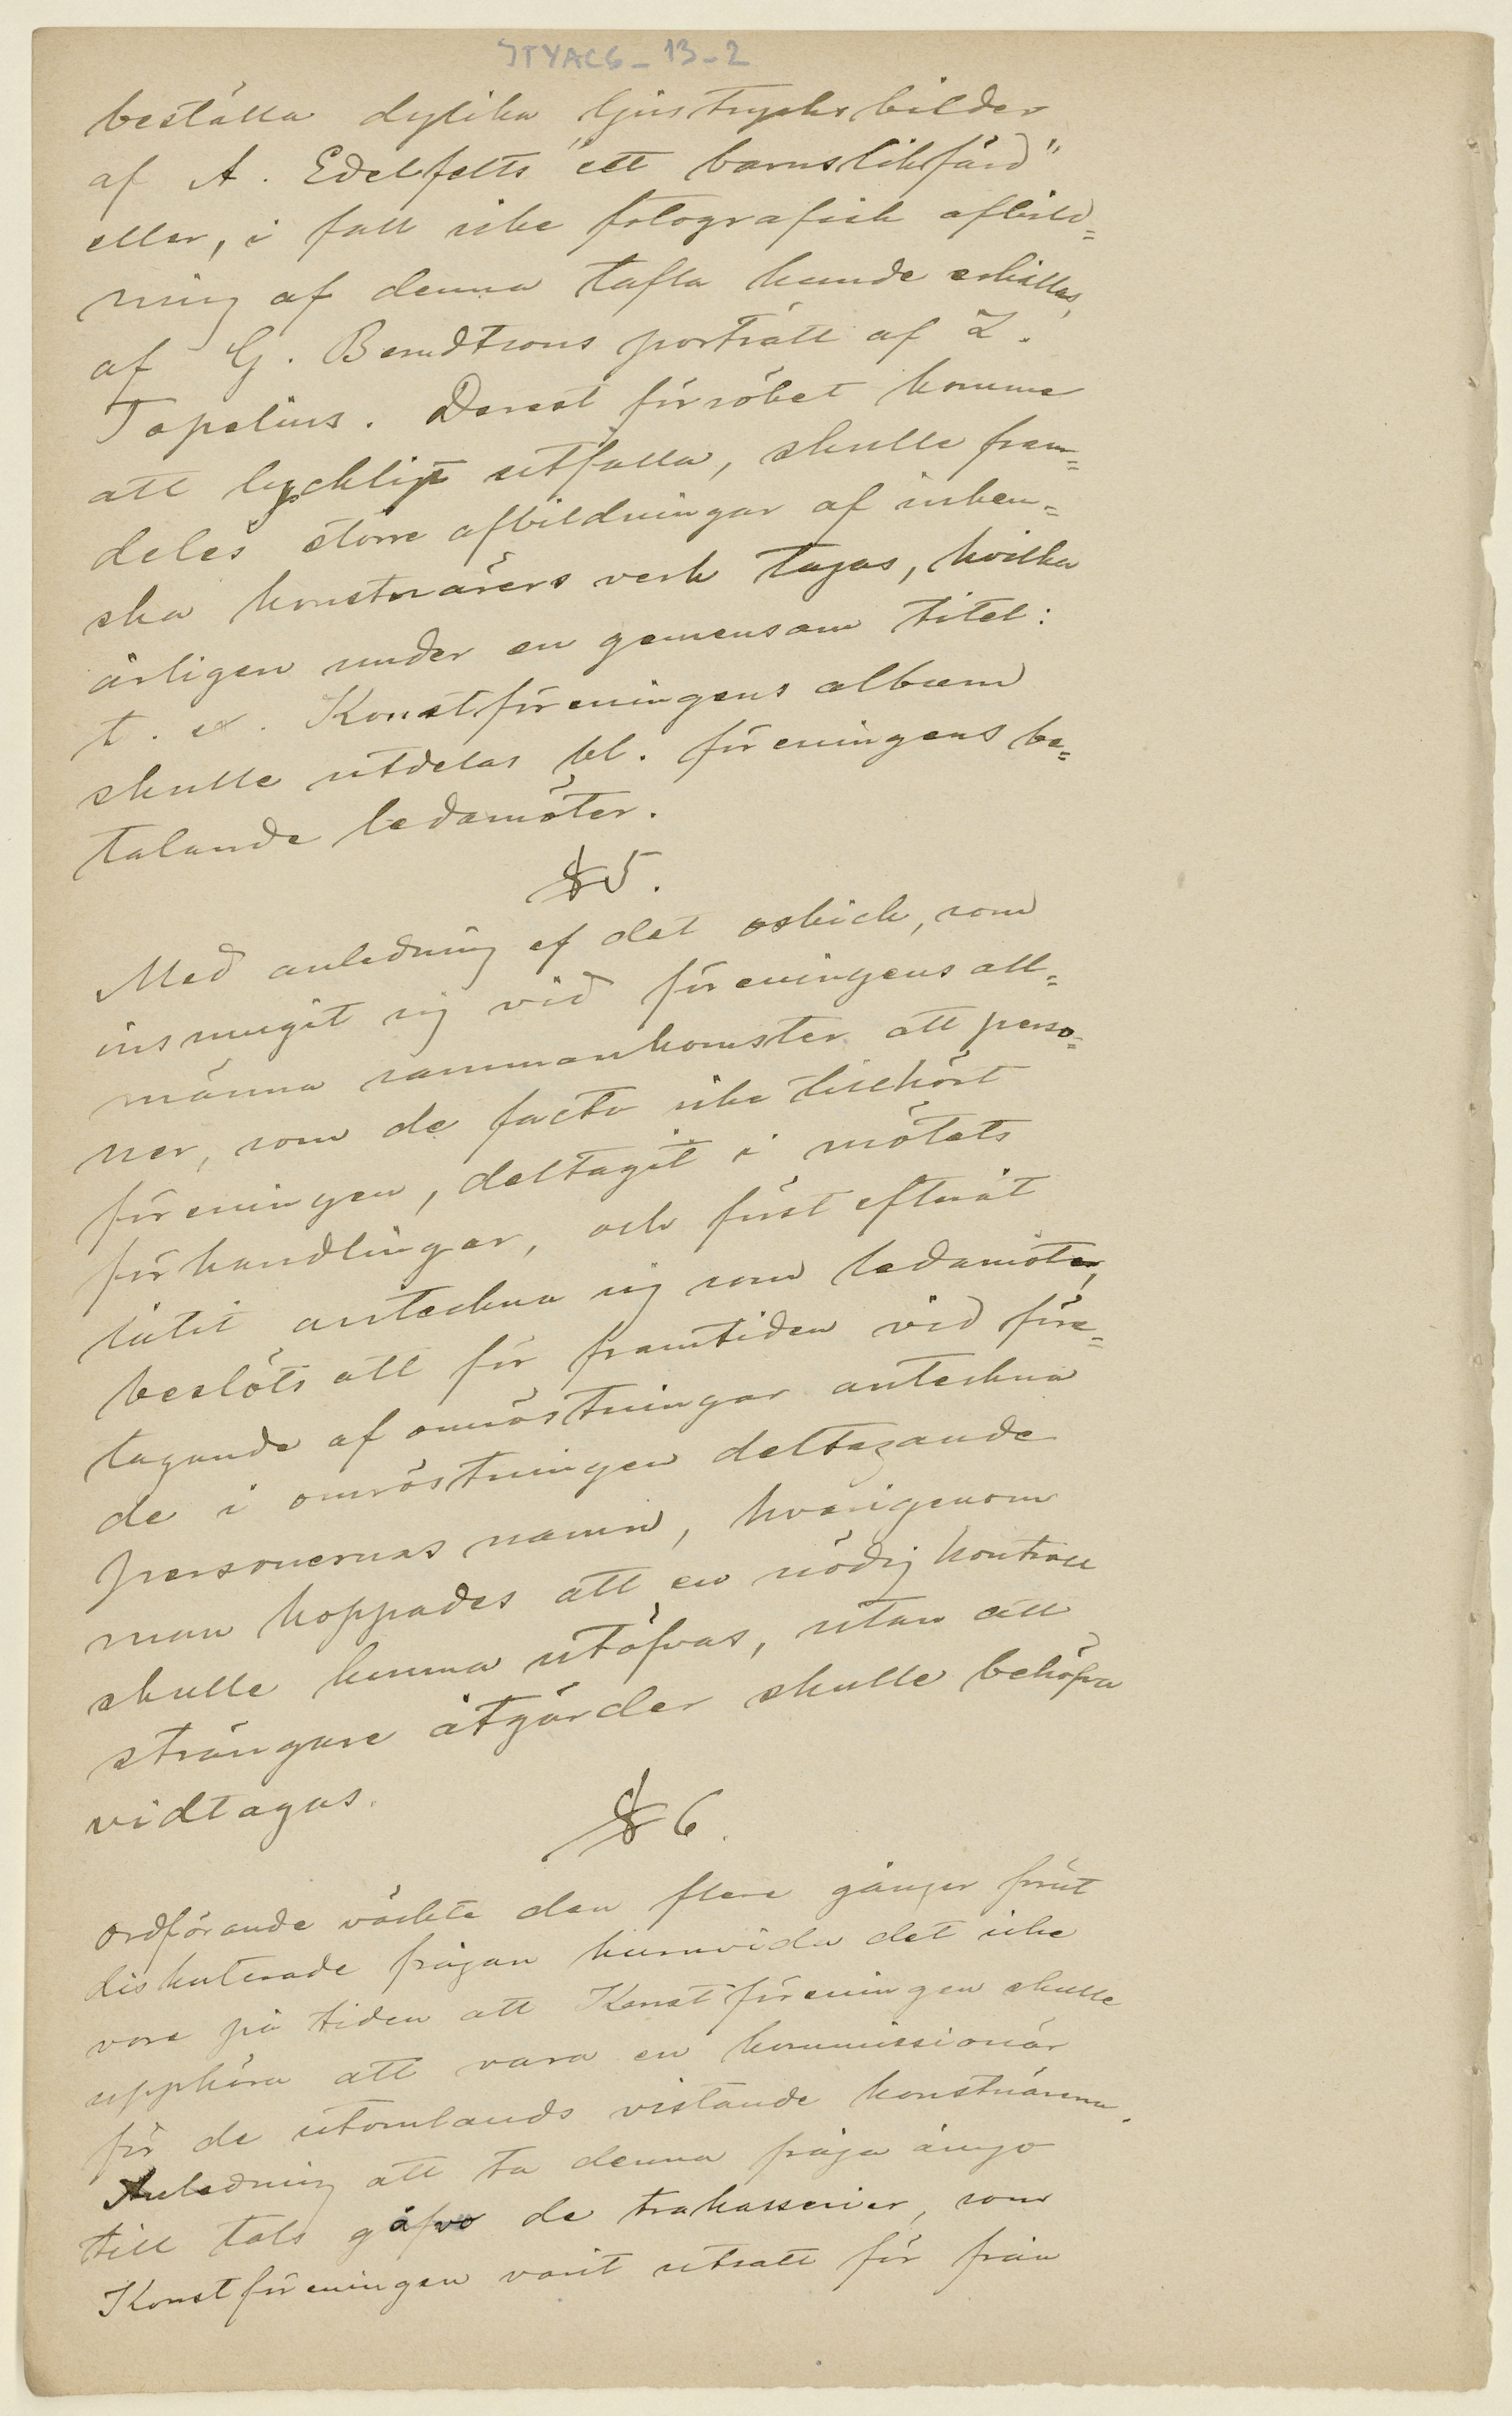 JTYAC6_13_2
beställa dylika ljustrycksbilder
af A. Edelfelts "ett barns likfärd"
eller, i fall icke fotografisk afbild=
ning af denna tafla kunde erhållas,
af G. Berndtsons porträtt af Z.
Topelius. Derest försöket komme
att lyckligt utfalla, skulle fram=
deles större afbildningar af inhem=
ska konstnärers verk tagas, hvilka
årligen under en gemensam titel:
t. ex. Konstföreningens album
skulle utdelas bl. föreningens be=
talande ledamöter.
§ 5.
Med anledning af det oskick, som
insmugit sig vid föreningens all=
männa sammankomster att perso=
ner, som de facto icke tillhört
föreningen, deltagit i mötets
förhandlingar, och först efteråt
låtit anteckna sig som ledamöter,
beslöts att för framtiden vid före=
tagande af omröstningar anteckna
de i omröstningen deltagande
personernas namn, hvarigenom
man hoppades att en nödig kontroll
skulle kunna utöfvas, utan att
strängare åtgärder skulle behöfva
vidtagas.
§ 6.
Ordförande väckte den flere gånger förut
diskuterade frågan huruvida det icke
vore på tiden att Konstföreningen skulle
upphöra att vara en kommissionär
för de utomlands vistande konstnärerna.
Anledning att ta denna fråga ånyo
till tals gåfvo de trakasserier, som
Konstföreningen varit utsatt för från